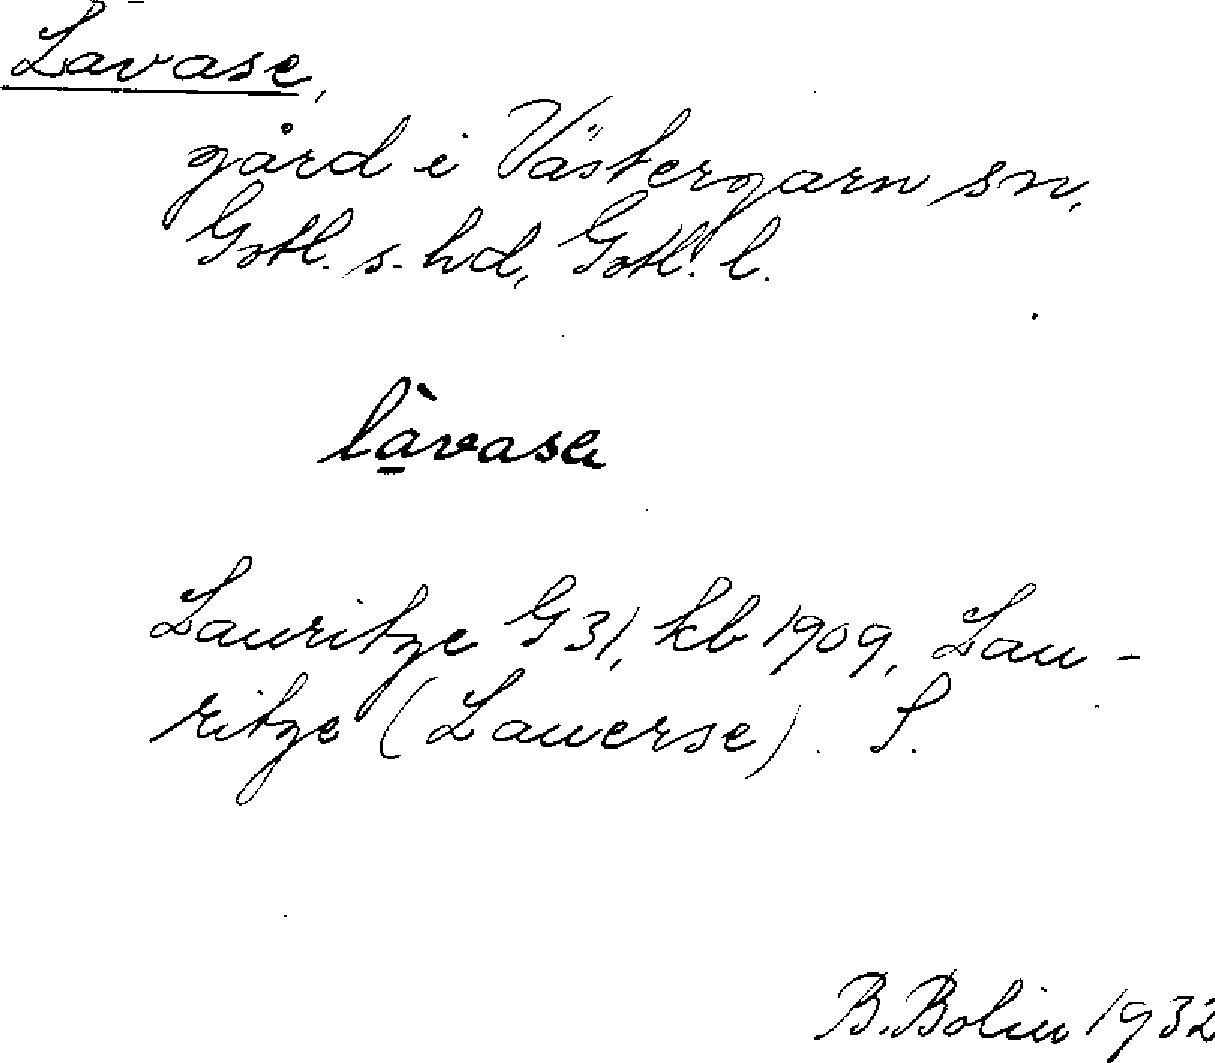 Lavase,
gård i Västergarn sn,
Gotl. s. hd, Gotl. l.
là̱vase
Lauritze G 31, kb 1909, Lau-
ritze (Lauerse). S.
B. Bolin 1932